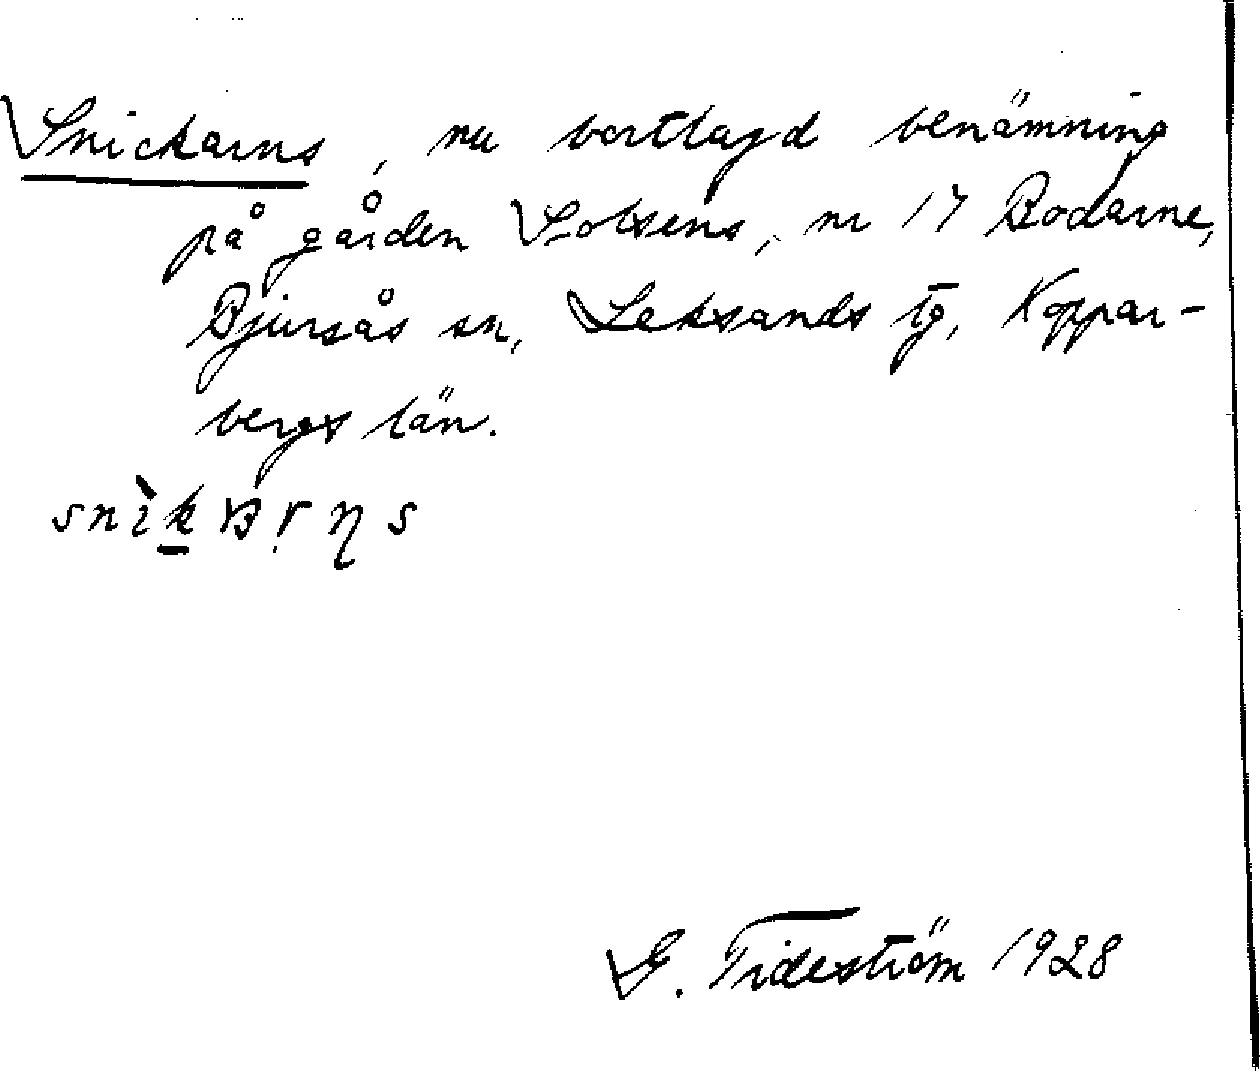 Snickarns, nu bortlagd benämning
på gården Solsens, nr 17 Bodarne,
Bjursås sn, Leksands tg, Koppar-
bergs län.
G. Tideström 1928